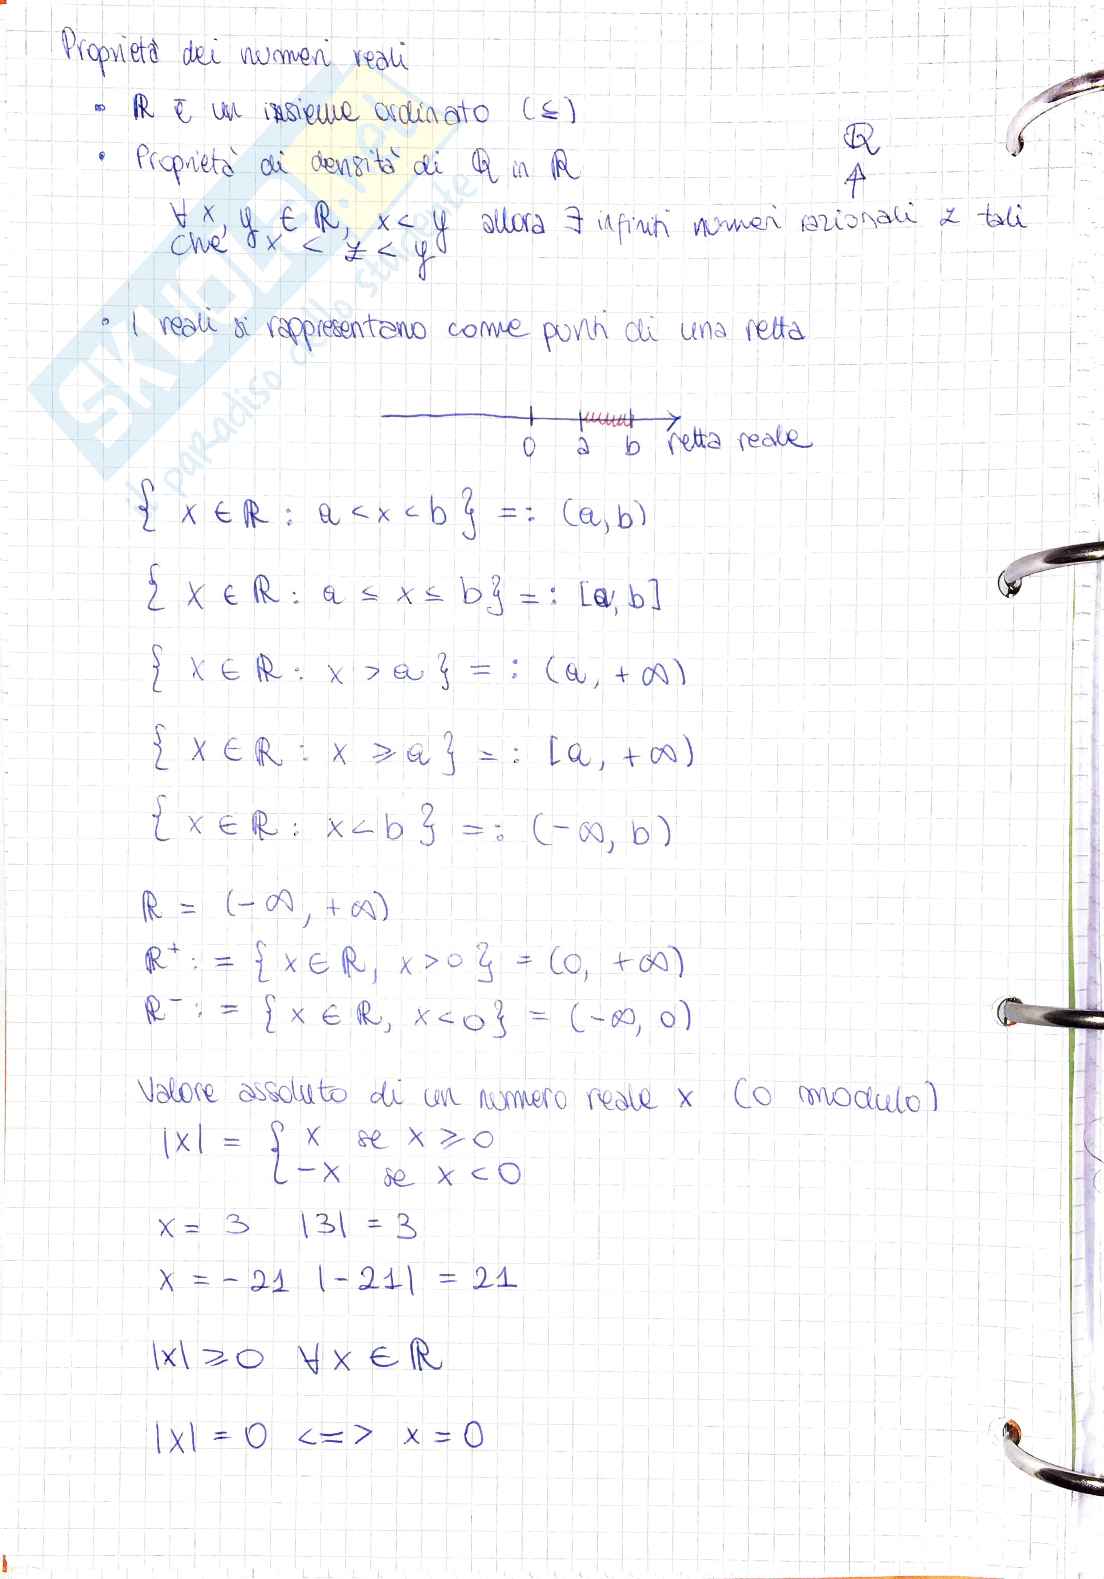 Proprietà dei numeri reali
• ℝ è un insieme ordinato (≤)
• Proprietà di densità di ℚ in ℝ
ℚ
↑
∀ x, y ∈ ℝ, x < y allora ∃ infiniti numeri razionali z tali
che x < z < y
• I reali si rappresentano come punti di una retta
0 a b retta reale
{ x ∈ ℝ : a < x < b } =: (a, b)
{ x ∈ ℝ : a ≤ x ≤ b } =: [a, b]
{ x ∈ ℝ : x > a } =: (a, +∞)
{ x ∈ ℝ : x ≥ a } =: [a, +∞)
{ x ∈ ℝ : x < b } =: (-∞, b)
ℝ = (-∞, +∞)
ℝ⁺ := { x ∈ ℝ, x > 0 } = (0, +∞)
ℝ⁻ := { x ∈ ℝ, x < 0 } = (-∞, 0)
Valore assoluto di un numero reale x (o modulo)
|x| = { x se x ≥ 0
-x se x < 0
x = 3 |3| = 3
x = -21 |-21| = 21
|x| ≥ 0 ∀ x ∈ ℝ
|x| = 0 <=> x = 0
SKUOLA.net
il paradiso dello studente